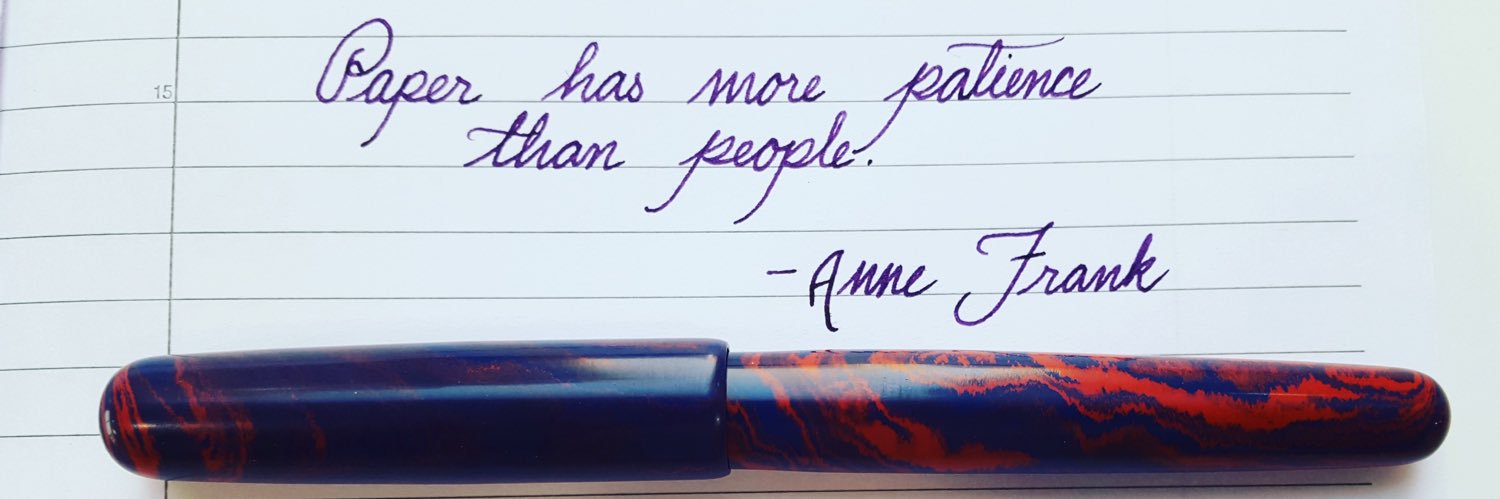 Paper has more patience
15
than people.
-Anne Frank